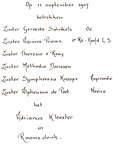 Op 11 september 1917
betrokken
Zuster Gerarda Swinkels Oe.
Zuster Aquina Biems
Zuster Theresia v. Rooy
Zuster Methodia Janssen
Zuster Symphorosa Knoops Aspirante
Zuster Alphonsa de Poot Novice
het
Adrianus Klooster
in
Raamsdonk.